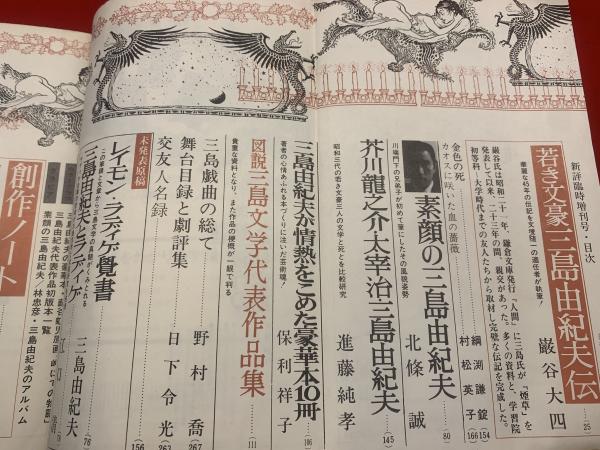 新評臨時増刊号・目次
若き文豪三島由紀夫伝
巌谷大四
25
華麗な45年の伝記を文壇随一の適任者が執筆!
巌谷氏は昭和二十一年、鎌倉文庫発行「人間」に三島氏が「煙草」を
発表して以来、二十三年の間、親交があった。多くの資料と、学習院
初等科―大学時代までの友人たちから取材し完璧な伝記を完成した。
金色の死
綱淵謙錠
154
カオスに咲いた血の薔薇
村松英子
166
素顔の三島由紀夫
北條誠
80
川端門下の兄弟子が初めて筆にしたその風貌姿勢
芥川龍之介・太宰治・三島由紀夫
進藤純孝
145
昭和三代の若き文豪三人の文学と死とを比較研究
三島由紀夫が情熱をこめた豪華本10冊
保利祥子
106
著者の心情あふれる本づくりに注いだ芸術魂!
図説三島文学代表作品集
111
貴重な資料となり、また作品の梗概が一覧で判る
三島戯曲の総て
野村喬
267
舞台目録と劇評集
263
交友人名録
日下令光
156
未発表原稿
レイモン・ラディゲ覺書
三島由紀夫
76
三島由紀夫とラディゲ
この筆蹟と文章から三島文学の真髄がくみとれる
三島由紀夫代表作品初版本一覧
素顔の三島由紀夫/林忠彦・三島由紀夫のアルバム
創作ノート